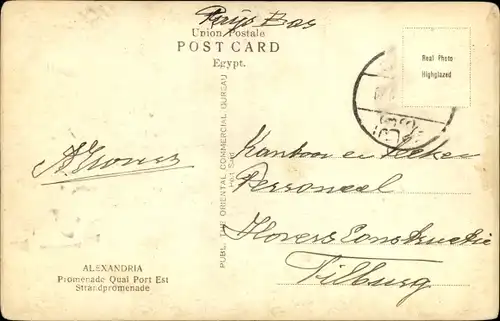 Union Postale
POST CARD
Egypt.
Real Photo
Highglazed
PUBL. THE ORIENTAL COMMERCIAL BUREAU
Port Said
Kantoor en
Personeel
Hovers Constructie
Tilburg
ALEXANDRIA
Promenade Quai Port Est
Strandpromenade